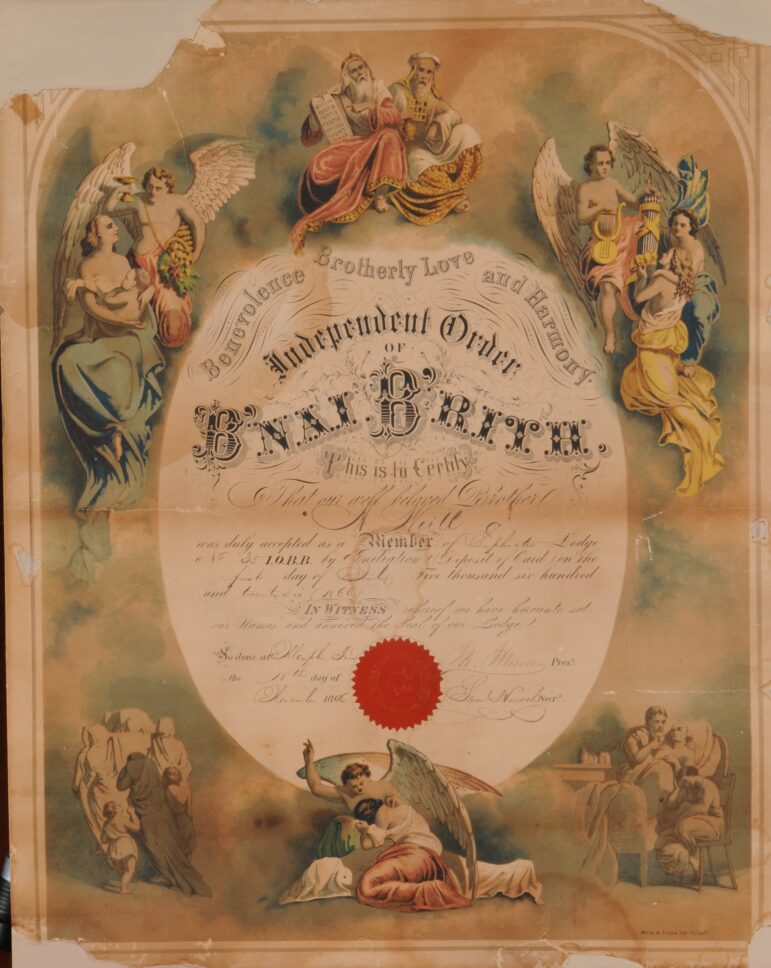 Benevolence Brotherly Love and Harmony.
Independent Order
OF
B'NAI B'RITH.
This is to Certify
That our well beloved Brother
N
was duly accepted as a Member of Lodge
No 35 I.O.B.B. by Initiation (Deposit of Card) on the
day of Five thousand six hundred
and 1866
IN WITNESS whereof we have hereunto set
our Names and annexed the Seal of our Lodge.
So done at Pres't.
the 15th day of
November 1866 Sam Hirsch Secr'y